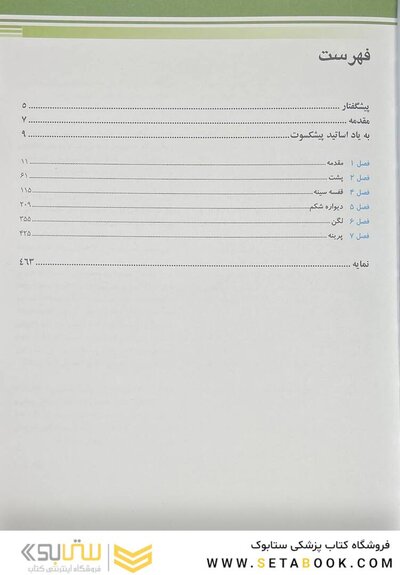 فهرست
پیشگفتار ..... ۵
مقدمه ..... ۷
به یاد اساتید پیشکسوت ..... ۹
فصل ۱ مقدمه ..... ۱۱
فصل ۲ پشت ..... ۶۱
فصل ۴ قفسه سینه ..... ۱۱۵
فصل ۵ دیواره شکم ..... ۲۰۹
فصل ۶ لگن ..... ۳۵۵
فصل ۷ پرینه ..... ۴۲۵
نمایه ..... ۴۶۳
فروشگاه کتاب پزشکی ستابوک
WWW.SETABOOK.COM
ستابوک
فروشگاه اینترنتی کتاب